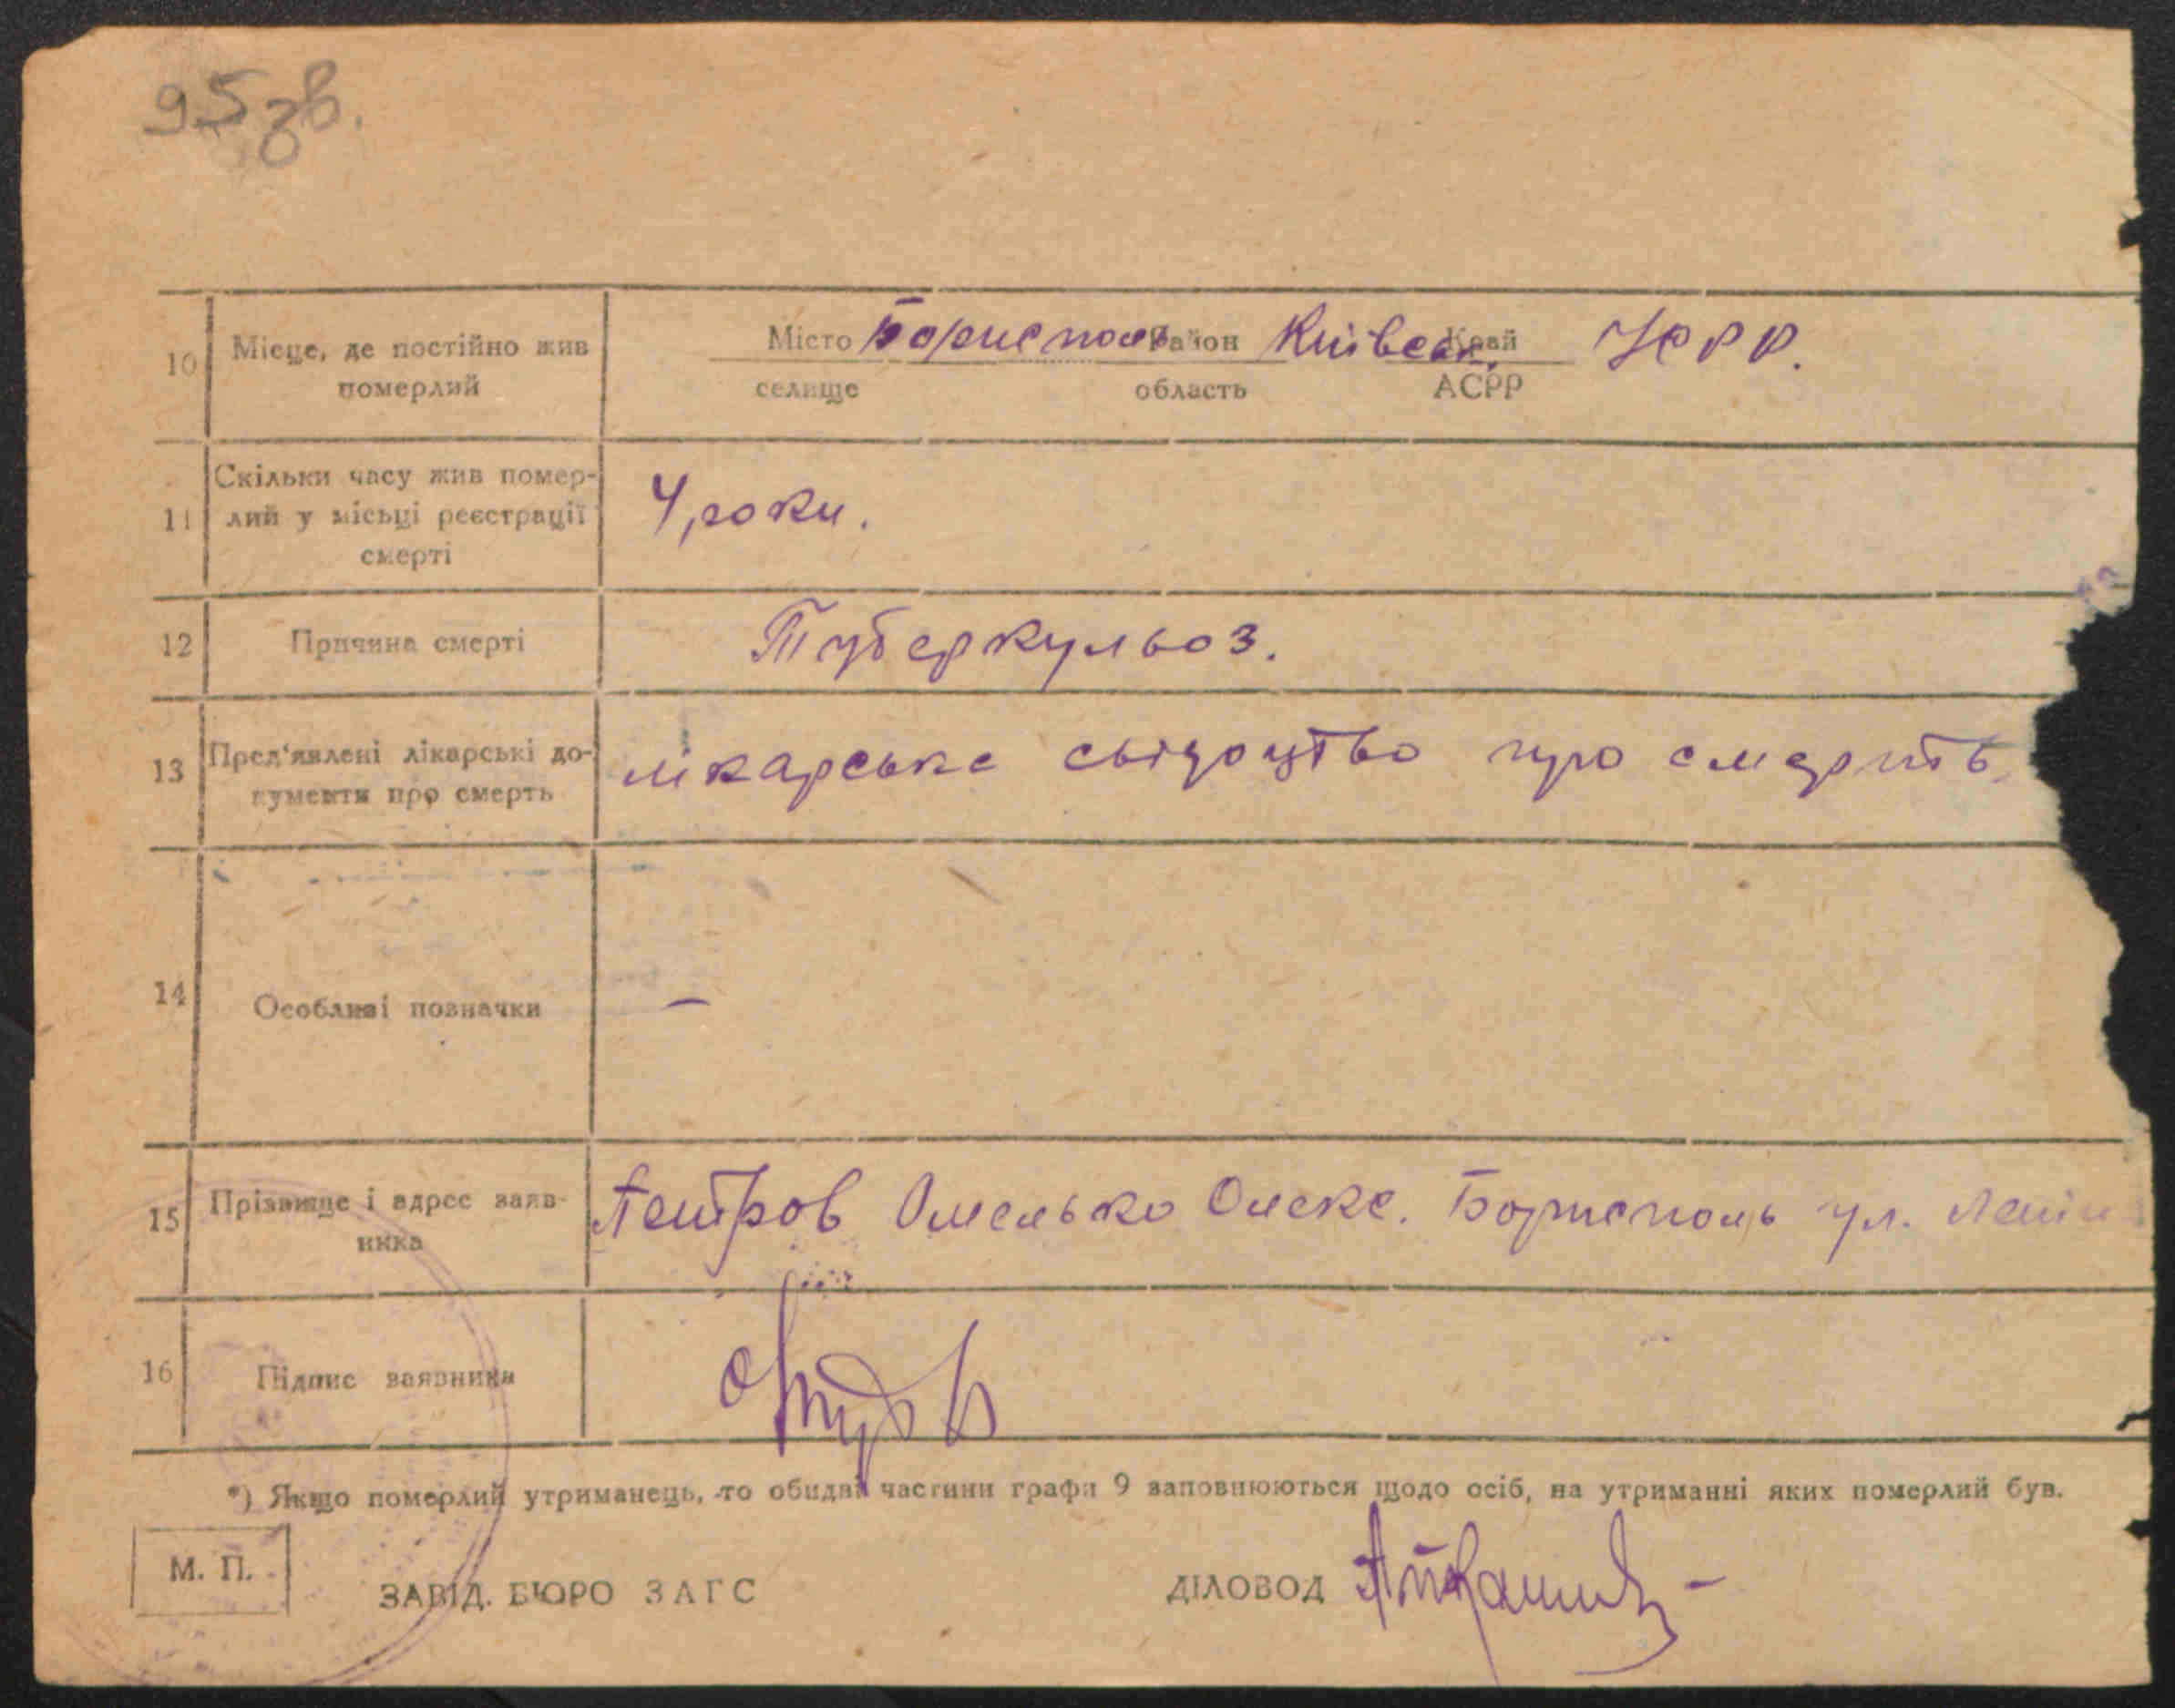 95 зв.
10 Місце, де постійно жив померлий
Місто Бориспол Район Київськ. Край УСРР.
селище область АСРР
11 Скільки часу жив помер-
лий у місьці реєстрації
смерті
4 роки.
12 Причина смерті Туберкульоз.
13 Пред'явлені лікарські до-
кументи про смерть
лікарське свідоцтво про смерть
14 Особливі позначки –
15 Прізвище і адрес заяв-
ника
Петров Омелько Олекс. Борисполь ул. Ленін
16 Підпис заявника
*) Якщо померлий утриманець, то обидві частини графи 9 заповнюються щодо осіб, на утриманні яких померлий був.
М. П.
ЗАВІД. БЮРО ЗАГС ДІЛОВОД